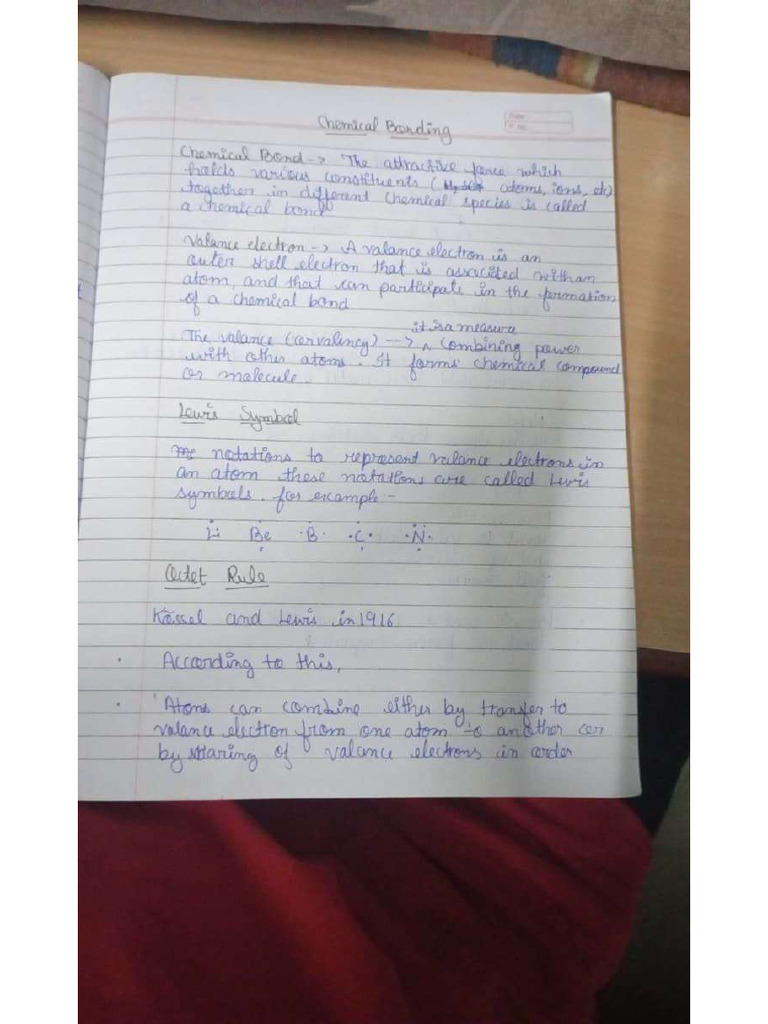 Chemical Bonding
Chemical Bond -> The attractive force which
holds various constituents ( atoms, ions, etc)
together in different chemical species is called
a chemical bond
Valance electron -> A valance electron is an
outer shell electron that is associted with an
atom, and that can participate in the formation
of a chemical bond
it is a measure
The valance (covalency) --> ^ Combining power
with other atoms. It forms chemical compound
or molecule.
Lewis Symbol
notations to represent valance electrons in
an atom these notations are called Lewis
symbols. for example -
Li Be ·B· ·C· ·N·
Octet Rule
Kössel and Lewis in 1916
· According to this,
· Atoms can combine either by transfer to
valance electron from one atom to another or
by sharing of valance electrons in order